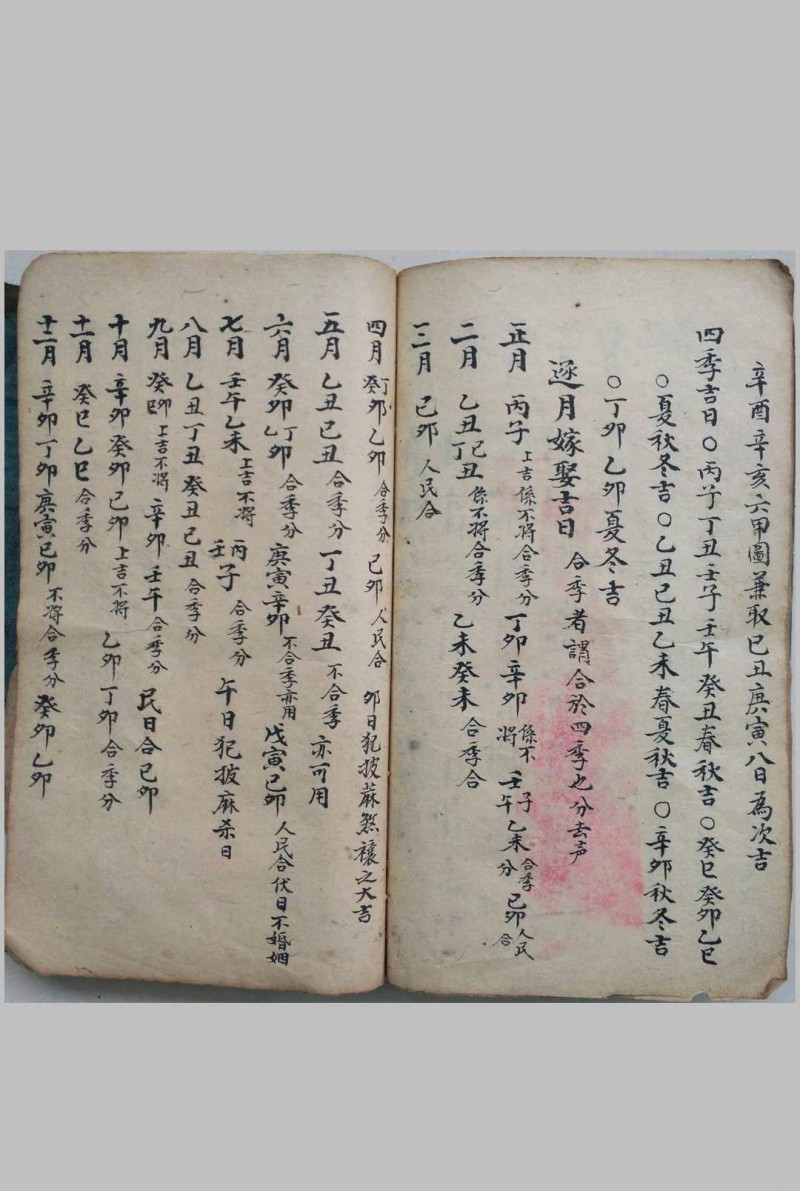 辛酉辛亥六甲圖兼取己丑庚寅八日為次吉
四季吉日〇丙子丁丑壬子壬午癸丑春秋吉〇癸巳癸卯乙巳
〇夏秋冬吉〇乙丑己丑乙未春夏秋吉〇辛卯秋冬吉
〇丁卯乙卯夏冬吉
逐月嫁娶吉日 合季者謂合於四季也分去声
正月 丙子 上吉係不將合季分 丁卯辛卯 係不將 壬子壬午乙未 合季分 己卯 人民合
二月 乙丑丁丑己丑 係不將合季分 乙未癸未 合季合
三月 己卯 人民合
四月 丁卯癸卯乙卯 合季分 己卯 人民合 卯日犯披蔴煞禳之大吉
五月 乙丑己丑 合季分 丁丑癸丑 不合季亦可用
六月 癸卯丁卯乙卯 合季分 庚寅辛卯 不合季亦用 戊寅己卯 人民合伏日不婚姻
七月 壬午乙未 上吉不將 丙子壬子 合季分 午日犯披麻杀日
八月 乙丑丁丑癸丑己丑 合季分
九月 癸卯癸巳 上吉不將 辛卯壬午 合季分 民日合己卯
十月 辛卯癸卯己卯 上吉不將 乙卯丁卯 合季分
十一月 癸巳乙巳 合季分
十二月 辛卯丁卯庚寅己卯 不將合季分 癸卯乙卯